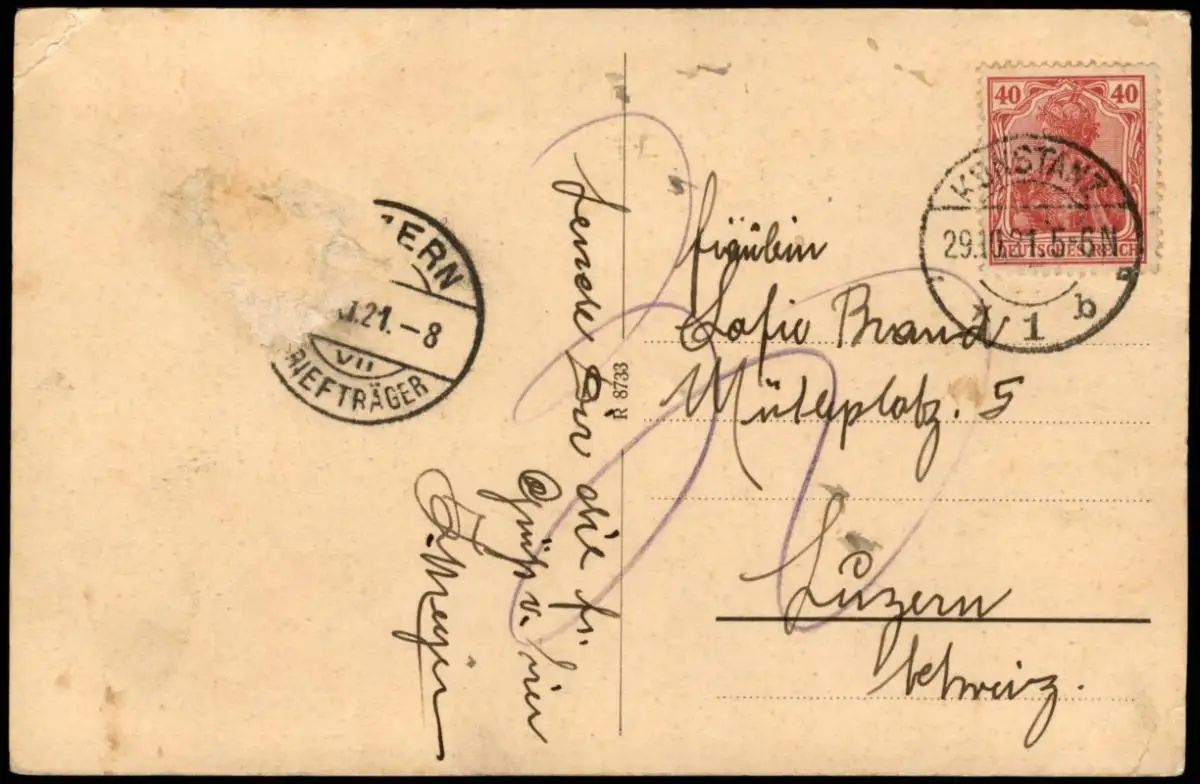 40 40
DEUTSCHES REICH
KONSTANZ
29.10.21. 5-6N
* 1 b
Fräulein
Sofie Brand
Mühleplatz. 5
Luzern
Schweiz.
R 8733
Sende Dir die fr.
Grüße v. hier
Meyer
ZERN
21.-8
VII
RIEFTRÄGER